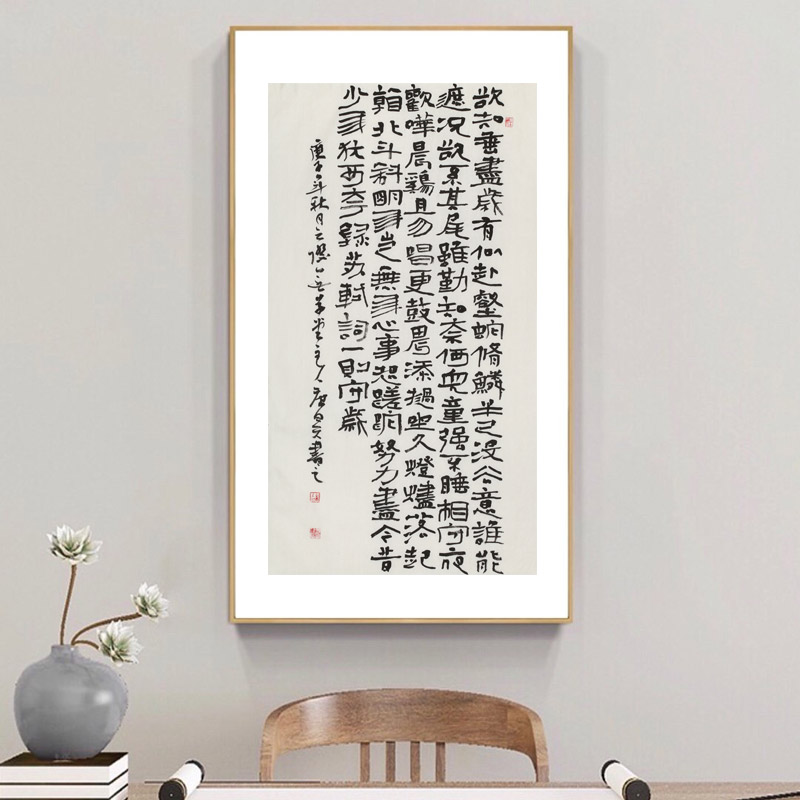 欲知垂盡歲有似赴壑蛇脩鱗半已没去意誰能
遮況欲系其尾雖勤知奈何兒童强不睡相守夜
歡嘩晨鷄且勿唱更鼓畏添撾坐久燈燼落起
看北斗斜明年豈無年心事恐蹉跎努力盡今昔
少年猶可夸錄蘇軾詞一則守歲
庚子年秋月草堂主人書之